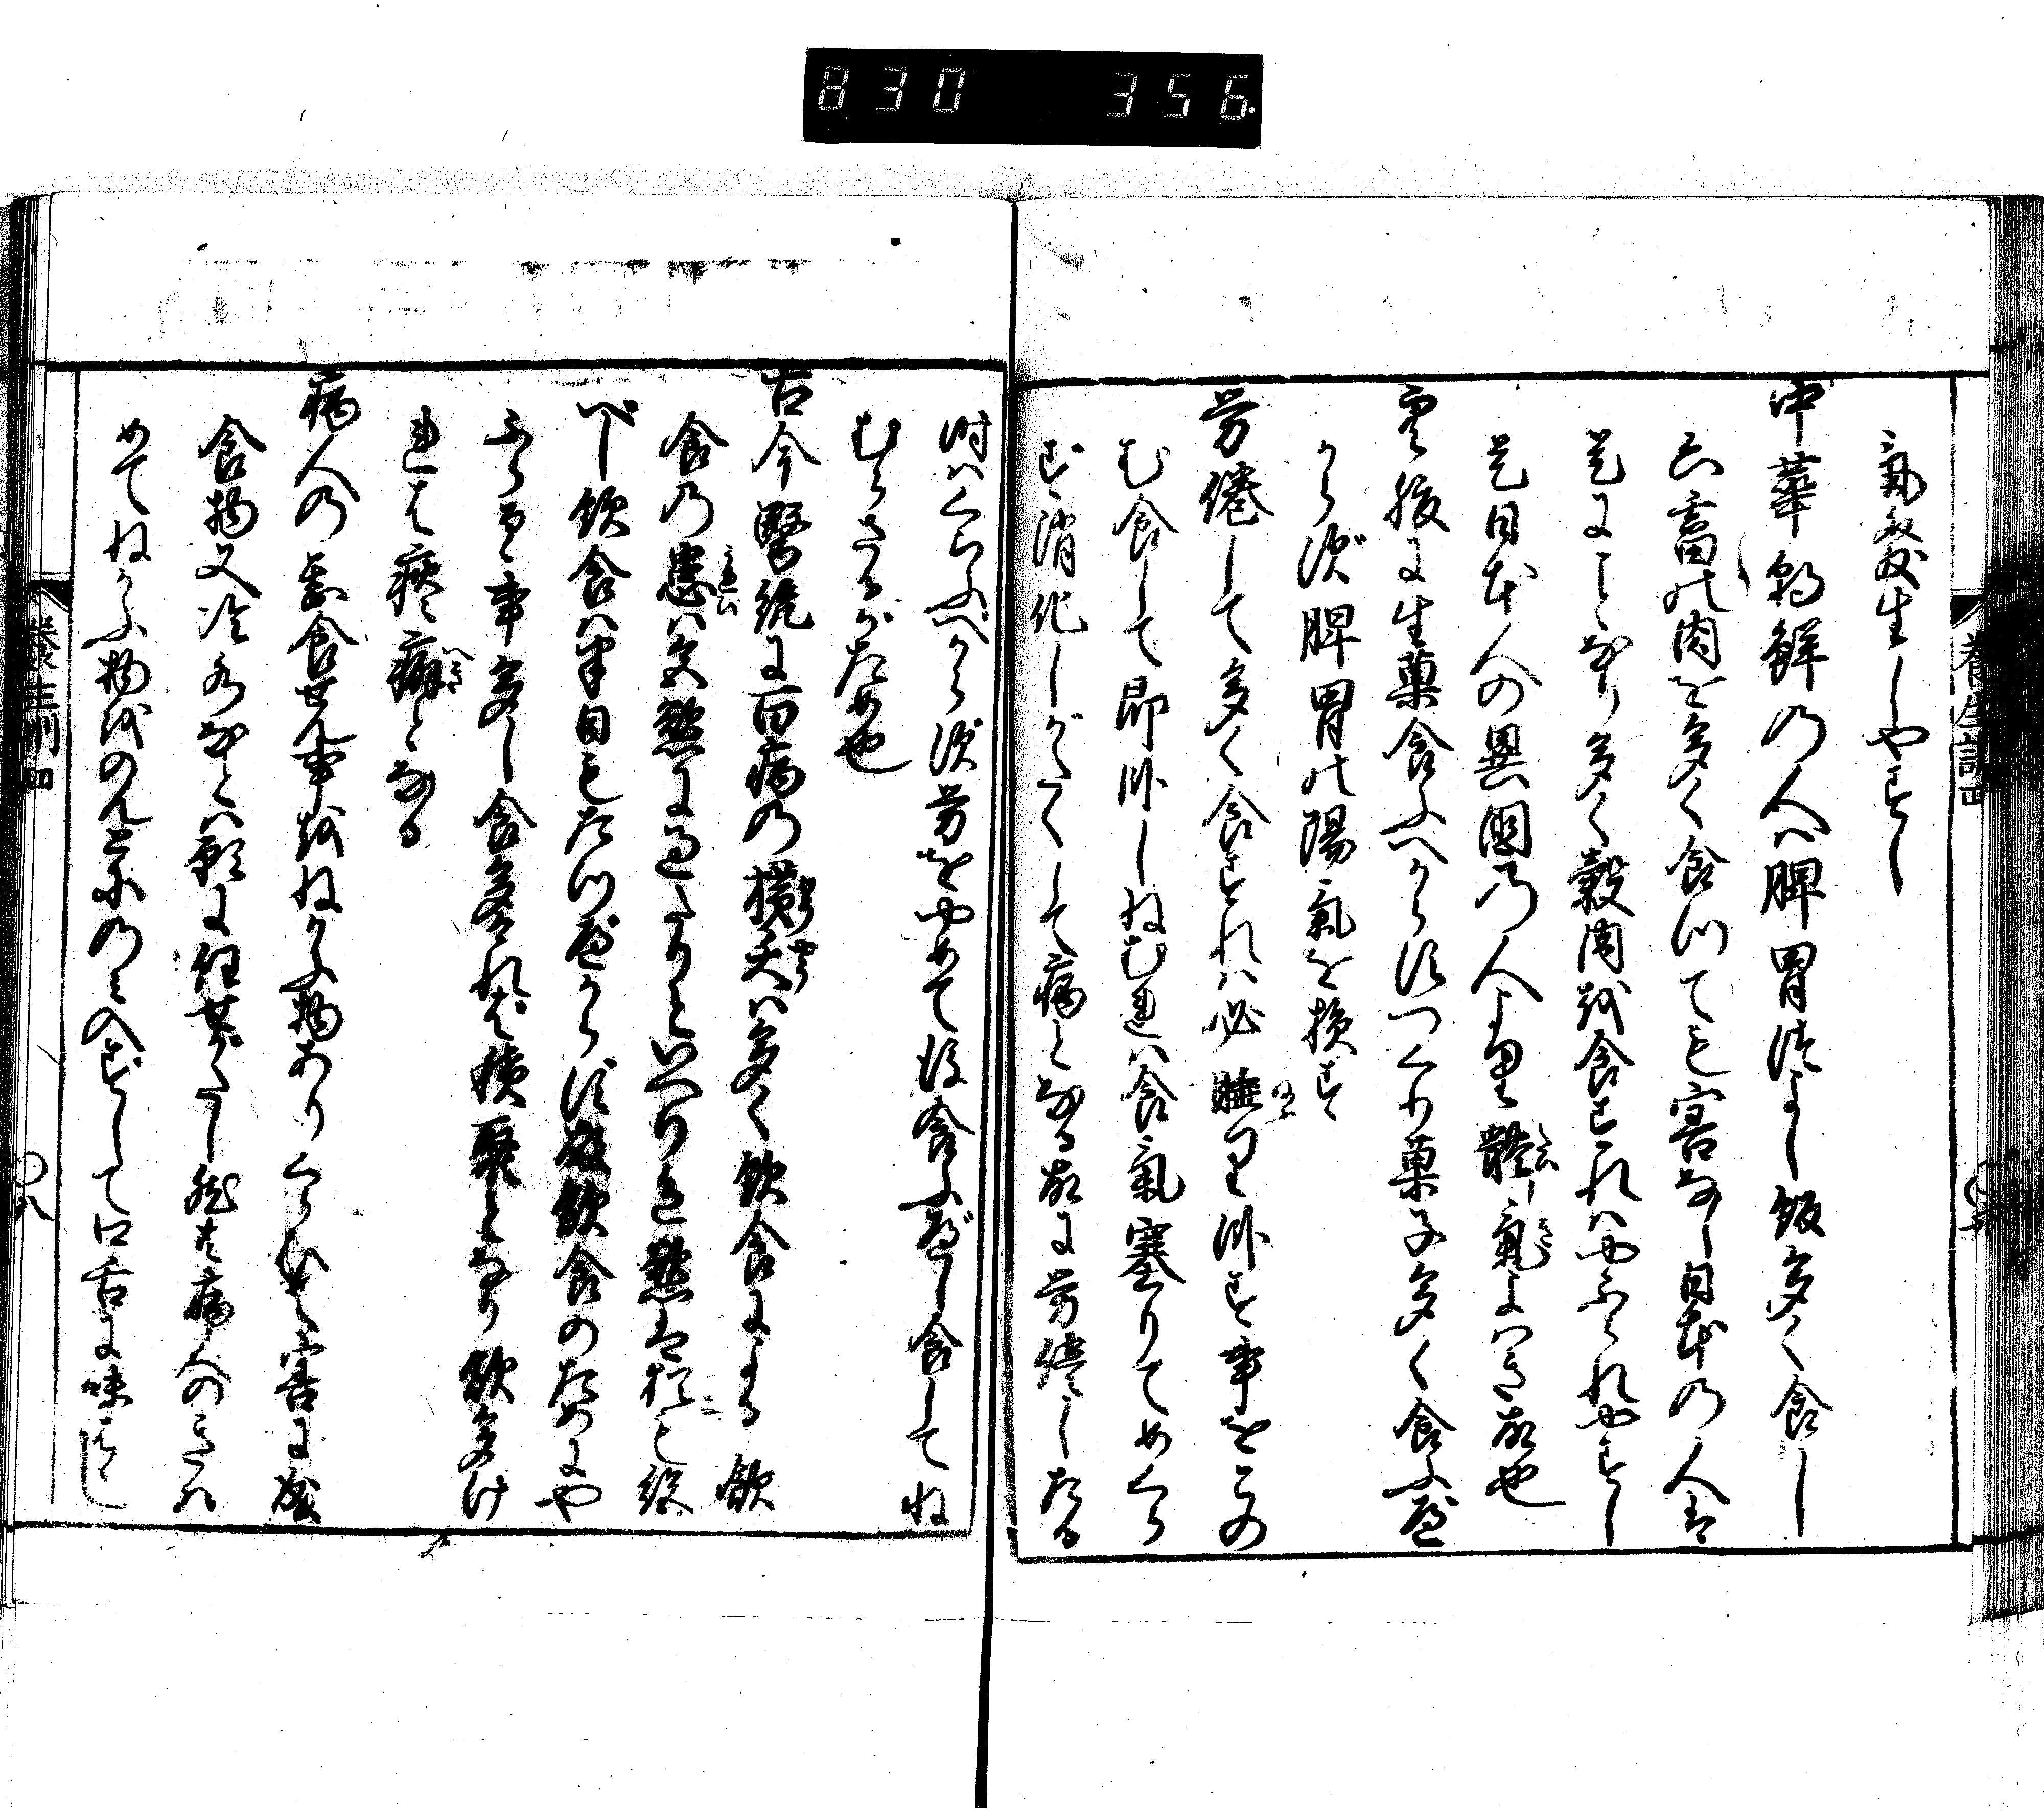 830 356
養生訓 四
氣發生しやすし
中華朝鮮の人ハ脾胃つよし飯多く食し
六畜の肉を多く食つても害なし日本の人は
是にことなり多く穀肉を食すれハやふられやすし
是日本人の異国の人より體氣よハき故也
空腹に生菓食ふへからすつくり菓子多く食ふべ
からず脾胃の陽氣を損す
労倦して多く食すれハ必睡り臥す事をこの
む食して即臥しねむれハ食氣塞りてめくら
ず消化しがたくして病となる故に労倦したる
時ハくらふべからず労をやめて後食ふべし食してね
むらさるがため也
古今醫統に百病の横夭ハ多く飲食による飲
食の患ハ色慾に過たりといへり色慾は猶も絶
べし飲食ハ半日もたつべからず故飲食のためにや
ふらるゝ事多し食多けれは積聚となり飲多け
れは痰癖となる
病人の甚食せん事をねかふ物ありくらひて害に成
食物又冷水なとハ願に任せがたし然共病人のきハ
めてねかふ物をのんとにのミ入ずして口舌に味ハゝし
養生訓 四
〇八